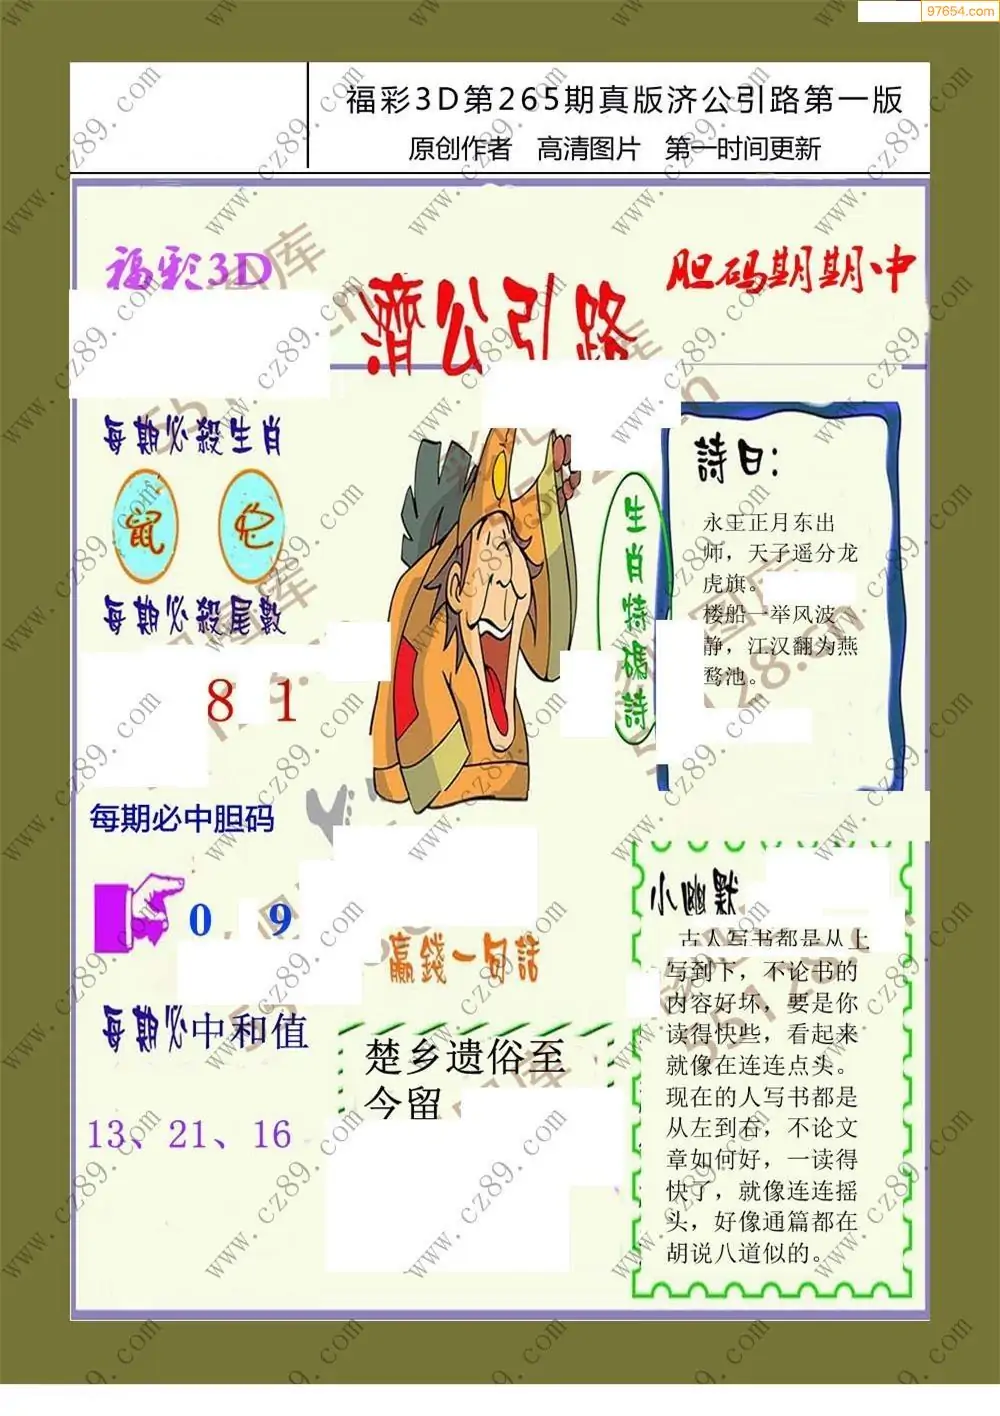 97654.com
福彩3D第265期真版济公引路第一版
原创作者 高清图片 第一时间更新
福彩3D
胆码期期中
濟公引路
每期必殺生肖
鼠 兔
每期必殺尾數
8 1
每期必中胆码
0 9
每期必中和值
13、21、16
生肖特碼詩
詩曰：
永王正月东出
师，天子遥分龙
虎旗。
楼船一举风波
静，江汉翻为燕
鹜池。
赢錢一句話
楚乡遗俗至
今留
小幽默
古人写书都是从上
写到下，不论书的
内容好坏，要是你
读得快些，看起来
就像在连连点头。
现在的人写书都是
从左到右，不论文
章如何好，一读得
快了，就像连连摇
头，好像通篇都在
胡说八道似的。
www.cz89.com